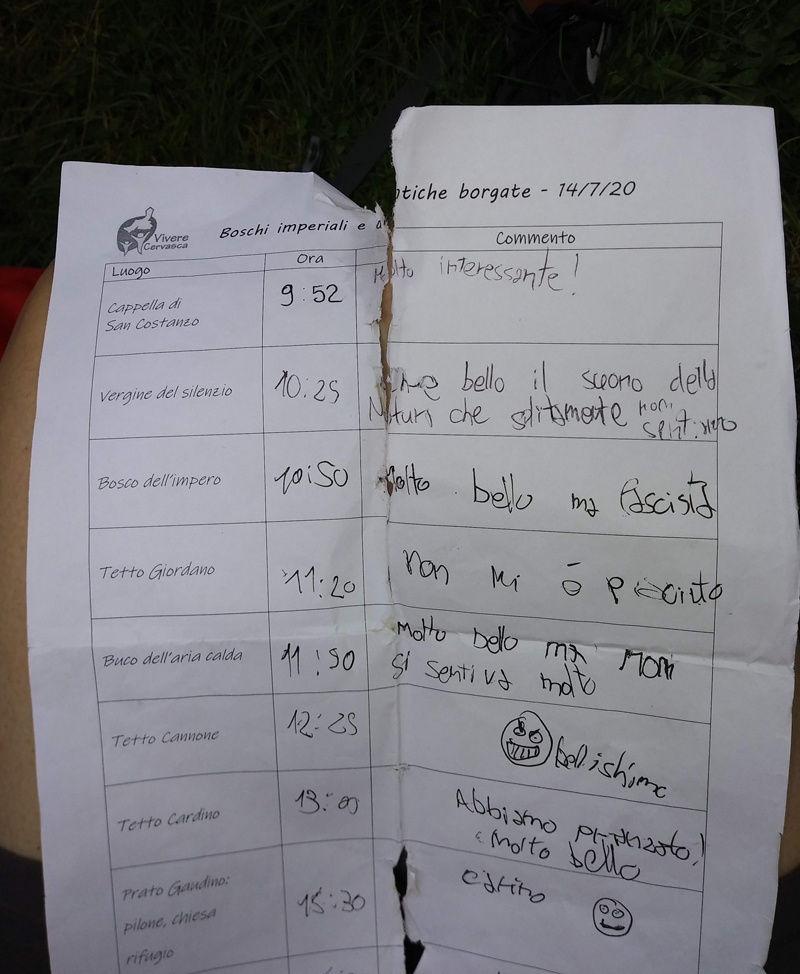 Vivere
Cervasca
Boschi imperiali e a
tiche borgate - 14/7/20
Luogo
Ora
Commento
Cappella di
San Costanzo
9:52
Molto interessante!
Vergine del silenzio
10:25
bello il suono della
che solitamente non
Bosco dell'impero
10:50
Molto bello ma fascista
Tetto Giordano
11:20
non mi è piaciuto
Buco dell'aria calda
11:50
Molto bello ma non
si sentiva molto
Tetto Cannone
12:25
Tetto Cardino
13:
Abbiamo pranzato!
molto bello
Prato Gaudino:
pilone, chiesa
rifugio
15:30
carino